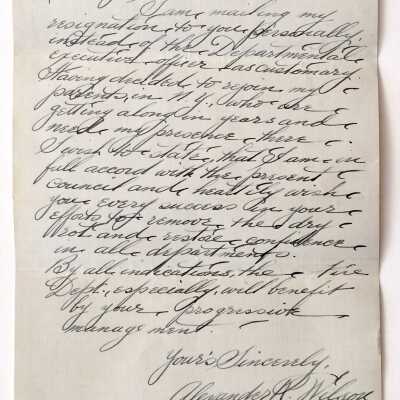 I am mailing my
resignation to you personally,
instead of the Departmental
executive officer as customary.
Having decided to rejoin my
parents, in N.Y., who are
getting along in years and
need my presence there.
I wish to state, that I am in
full accord with the present
council and heartily wish
you every success in your
efforts to remove the dry
rot and restore confidence
in all departments.
By all indications, the Fire
Dept., especially, will benefit
by your progressive
management.
Your's Sincerely,
Alexander R. Wilson